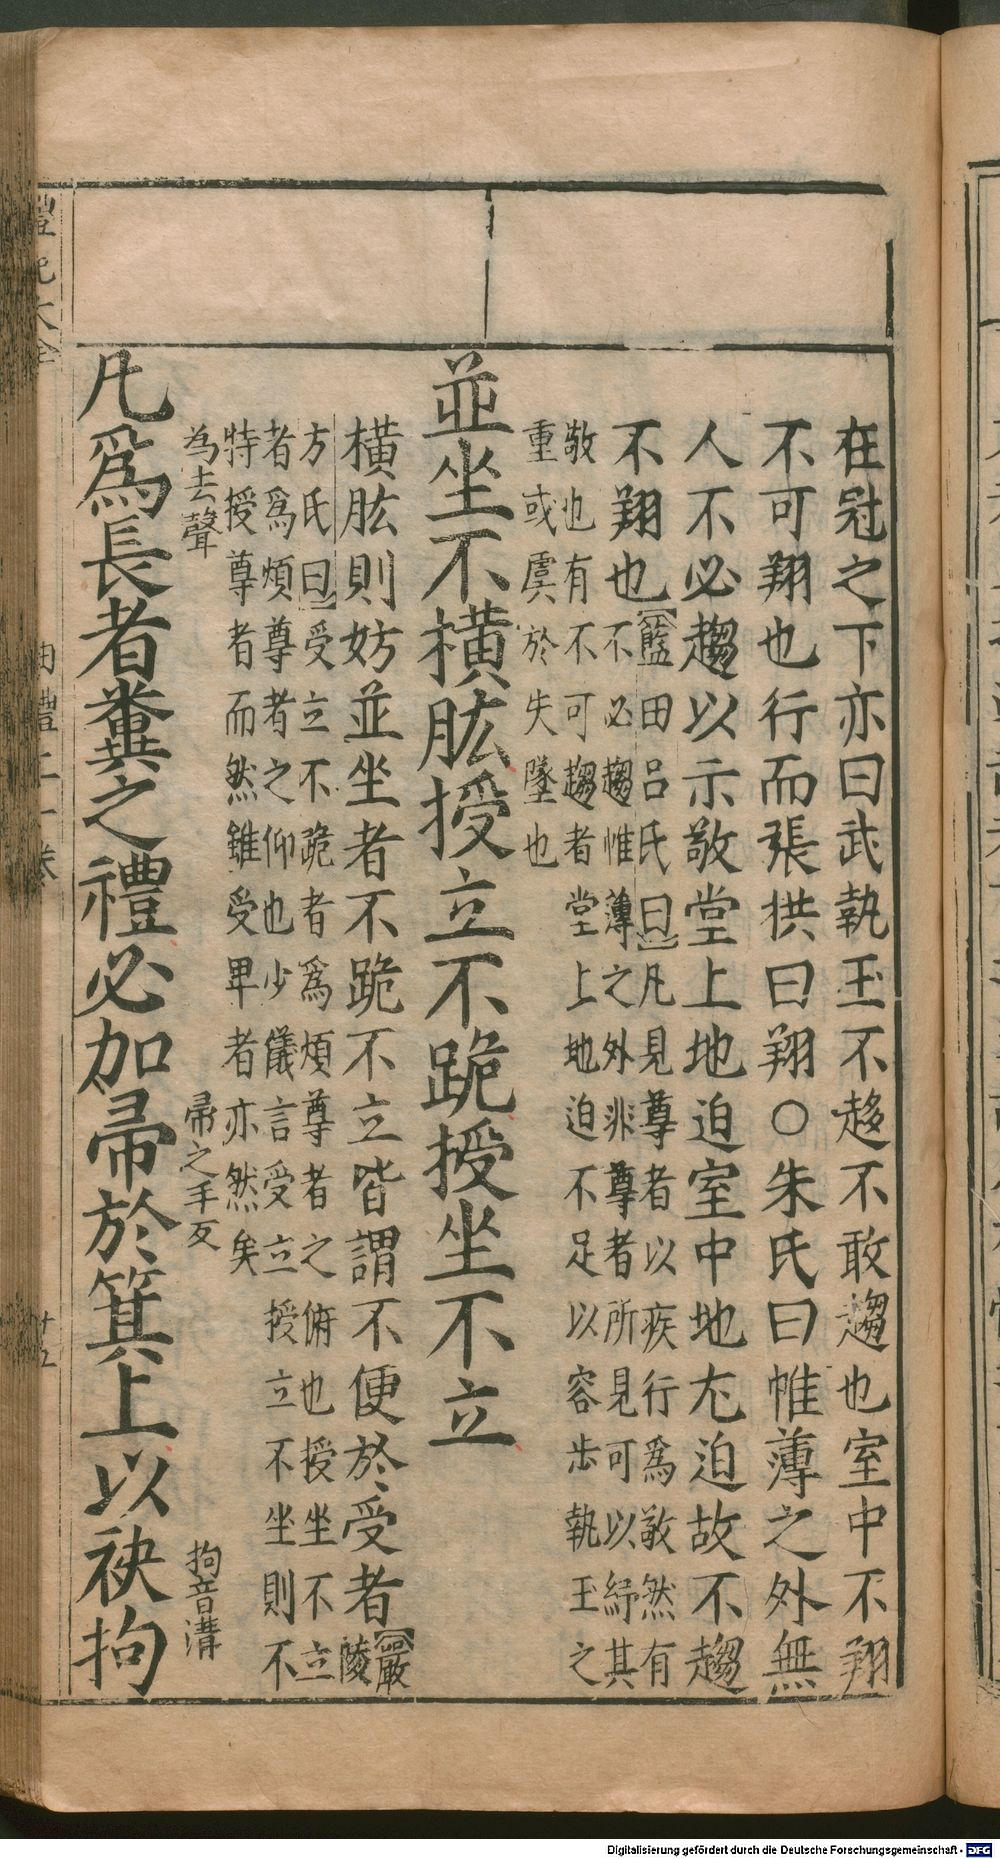 在冠之下亦曰武執玉不趍不敢趨也室中不翔
不可翔也行而張拱曰翔○朱氏曰帷薄之外無
人不必趨以示敬堂上地迫室中地尢迫故不趨
不翔也
藍田呂氏曰凡見尊者以疾行爲敬然有
不必趨惟薄之外非尊者所見可以紓其
敬也有不可趨者堂上地迫不足以容步執玉之
重或虞於失墜也
並坐不橫肱授立不跪授坐不立
橫肱則妨並坐者不跪不立皆謂不便於受者
嚴陵
方氏曰受立不跪者爲煩尊者之俯也授坐不立
者爲煩尊者之仰也少儀言受立授立不坐則不
特授尊者而然雖受畢者亦然矣
為去聲
帚之手反
拘音溝
凡爲長者糞之禮必加帚於箕上以袂拘
禮記大全
曲禮上一卷
十五
Digitalisierung gefördert durch die Deutsche Forschungsgemeinschaft - DFG